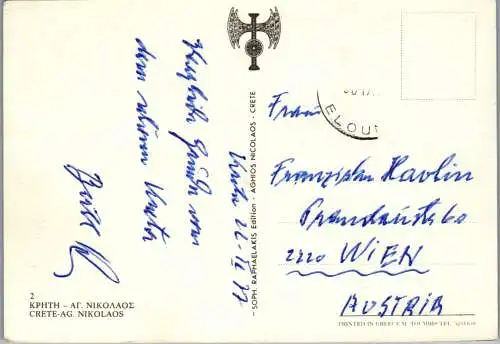 Kreta 22. IX 77
Herzliche Grüße vom
dem schönen Kreta
2
ΚΡΗΤΗ – ΑΓ. ΝΙΚΟΛΑΟΣ
CRETE-AG. NIKOLAOS
SOPH. RAPHAELAKIS Edition - AGHIOS NICOLAOS - CRETE
ELOU
Frau
Franziska Havlin
60
WIEN
AUSTRIA
PRINTED IN GREECE